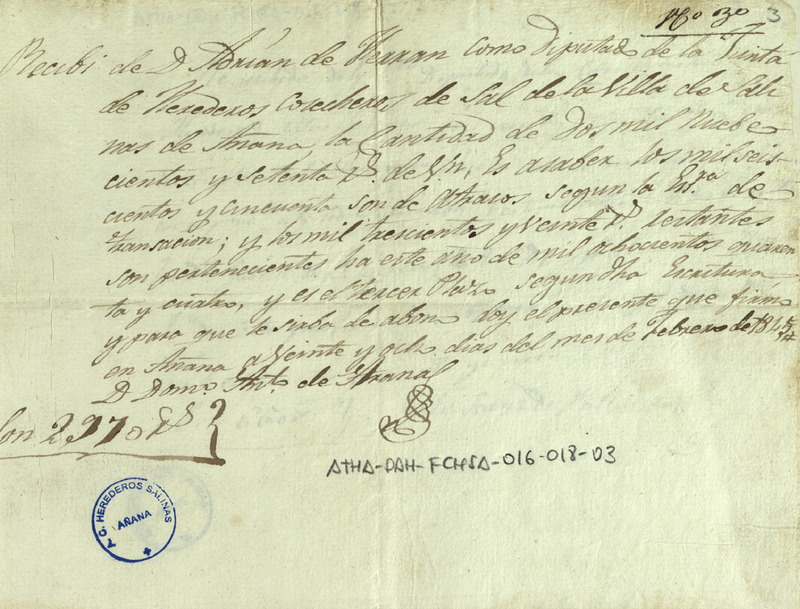 Nº 3º 3
Recibi de D Adrián de Herran como Diputado de la Junta
de Herederos Cosecheros de Sal de la Villa de Sali-
nas de Añana, la Cantidad de Dos mil Nuebe-
cientos y setenta Rs. de Vn, Es asaber los mil seis-
cientos y cincuenta son de atrasos segun la Esra. de
transacion; y los mil trescientos y veinte Rs. restantes
son pertenecientes ha este año de mil ochocientos quaren
ta y cuatro, y es el tercer Plazo segun dha Escritura
y para que le sirba de abono doy el presente que firmo
en Añana a Veinte y ocho dias del mes de Febrero de 1845
D Domo. Anto. de
Son 2970 Rs
ATHA-DAH-FCHSA-016-018-03
T.G. HEREDEROS SALINAS
AÑANA